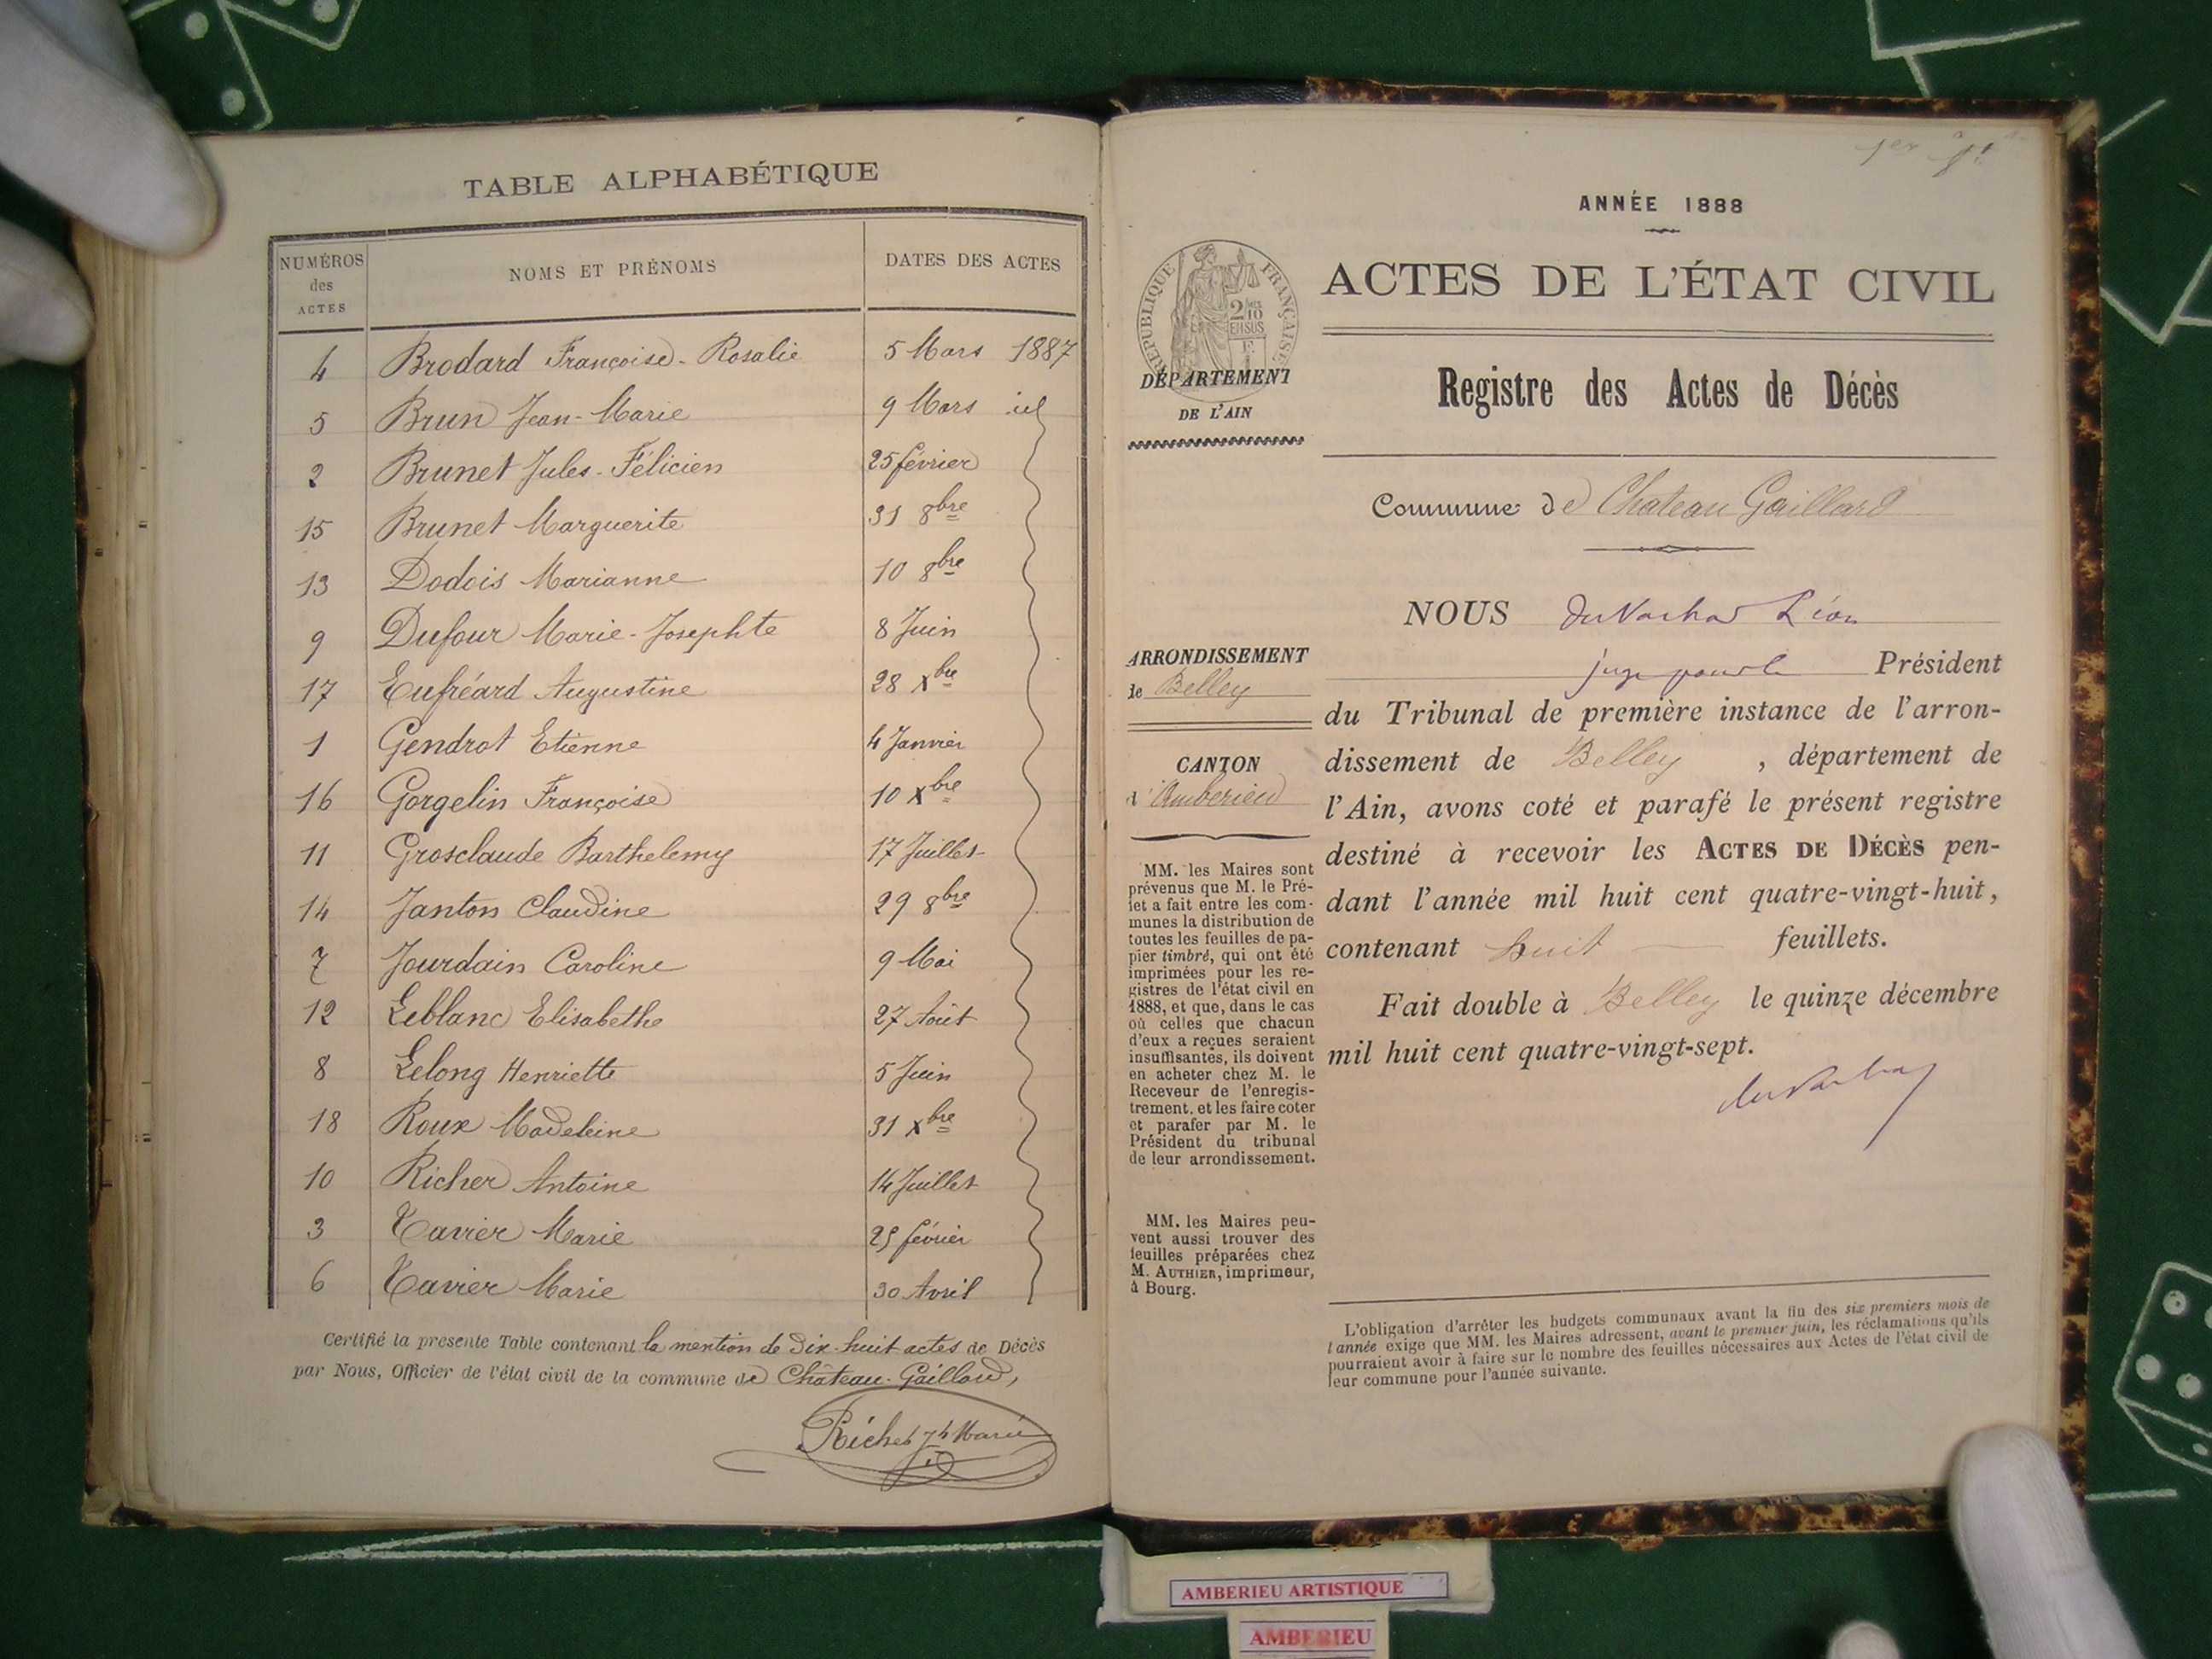 TABLE ALPHABÉTIQUE
NUMÉROS des ACTES NOMS ET PRÉNOMS DATES DES ACTES
4 Brodard Françoise-Rosalie 5 Mars 1887
5 Brun Jean-Marie 9 Mars id
2 Brunet Jules-Félicien 25 février
15 Brunet Marguerite 31 8bre
13 Dodois Marianne 10 8bre
9 Dufour Marie-Josephte 8 Juin
17 Eufréard Augustine 28 Xbre
1 Gendrot Etienne 4 Janvier
16 Gorgelin Françoise 10 Xbre
11 Grosclaude Barthelemy 17 Juillet
14 Janton Claudine 29 8bre
7 Jourdain Caroline 9 Mai
12 Leblanc Elisabethe 27 Août
8 Lelong Henriette 5 Juin
18 Roux Madeleine 31 Xbre
10 Richer Antoine 14 Juillet
3 Tavier Marie 25 février
6 Tavier Marie 30 Avril
Certifié la presente Table contenant la mention de Dix-huit actes de Décès
par Nous, Officier de l'état civil de la commune de Château-Gaillard,
1er
ANNÉE 1888
RÉPUBLIQUE FRANÇAISE
2/10
EN SUS
E
ACTES DE L'ÉTAT CIVIL
DÉPARTEMENT
DE L'AIN
Registre des Actes de Décès
Commune de Chateau Gaillard
NOUS Léon
juge pour le Président
ARRONDISSEMENT
de Belley
CANTON
d'Amberieu
du Tribunal de première instance de l'arron-
dissement de Belley , département de
l'Ain, avons coté et parafé le présent registre
destiné à recevoir les ACTES DE DÉCÈS pen-
dant l'année mil huit cent quatre-vingt-huit,
contenant huit feuillets.
Fait double à Belley le quinze décembre
mil huit cent quatre-vingt-sept.
MM. les Maires sont
prévenus que M. le Pré-
fet a fait entre les com-
munes la distribution de
toutes les feuilles de pa-
pier timbré, qui ont été
imprimées pour les re-
gistres de l'état civil en
1888, et que, dans le cas
où celles que chacun
d'eux a reçues seraient
insuffisantes, ils doivent
en acheter chez M. le
Receveur de l'enregis-
trement, et les faire coter
et parafer par M. le
Président du tribunal
de leur arrondissement.
MM. les Maires peu-
vent aussi trouver des
feuilles préparées chez
M. AUTHIER, imprimeur,
à Bourg.
L'obligation d'arrêter les budgets communaux avant la fin des six premiers mois de
l'année exige que MM. les Maires adressent, avant le premier juin, les réclamations qu'ils
pourraient avoir à faire sur le nombre des feuilles nécessaires aux Actes de l'état civil de
leur commune pour l'année suivante.
AMBERIEU ARTISTIQUE
AMBERIEU